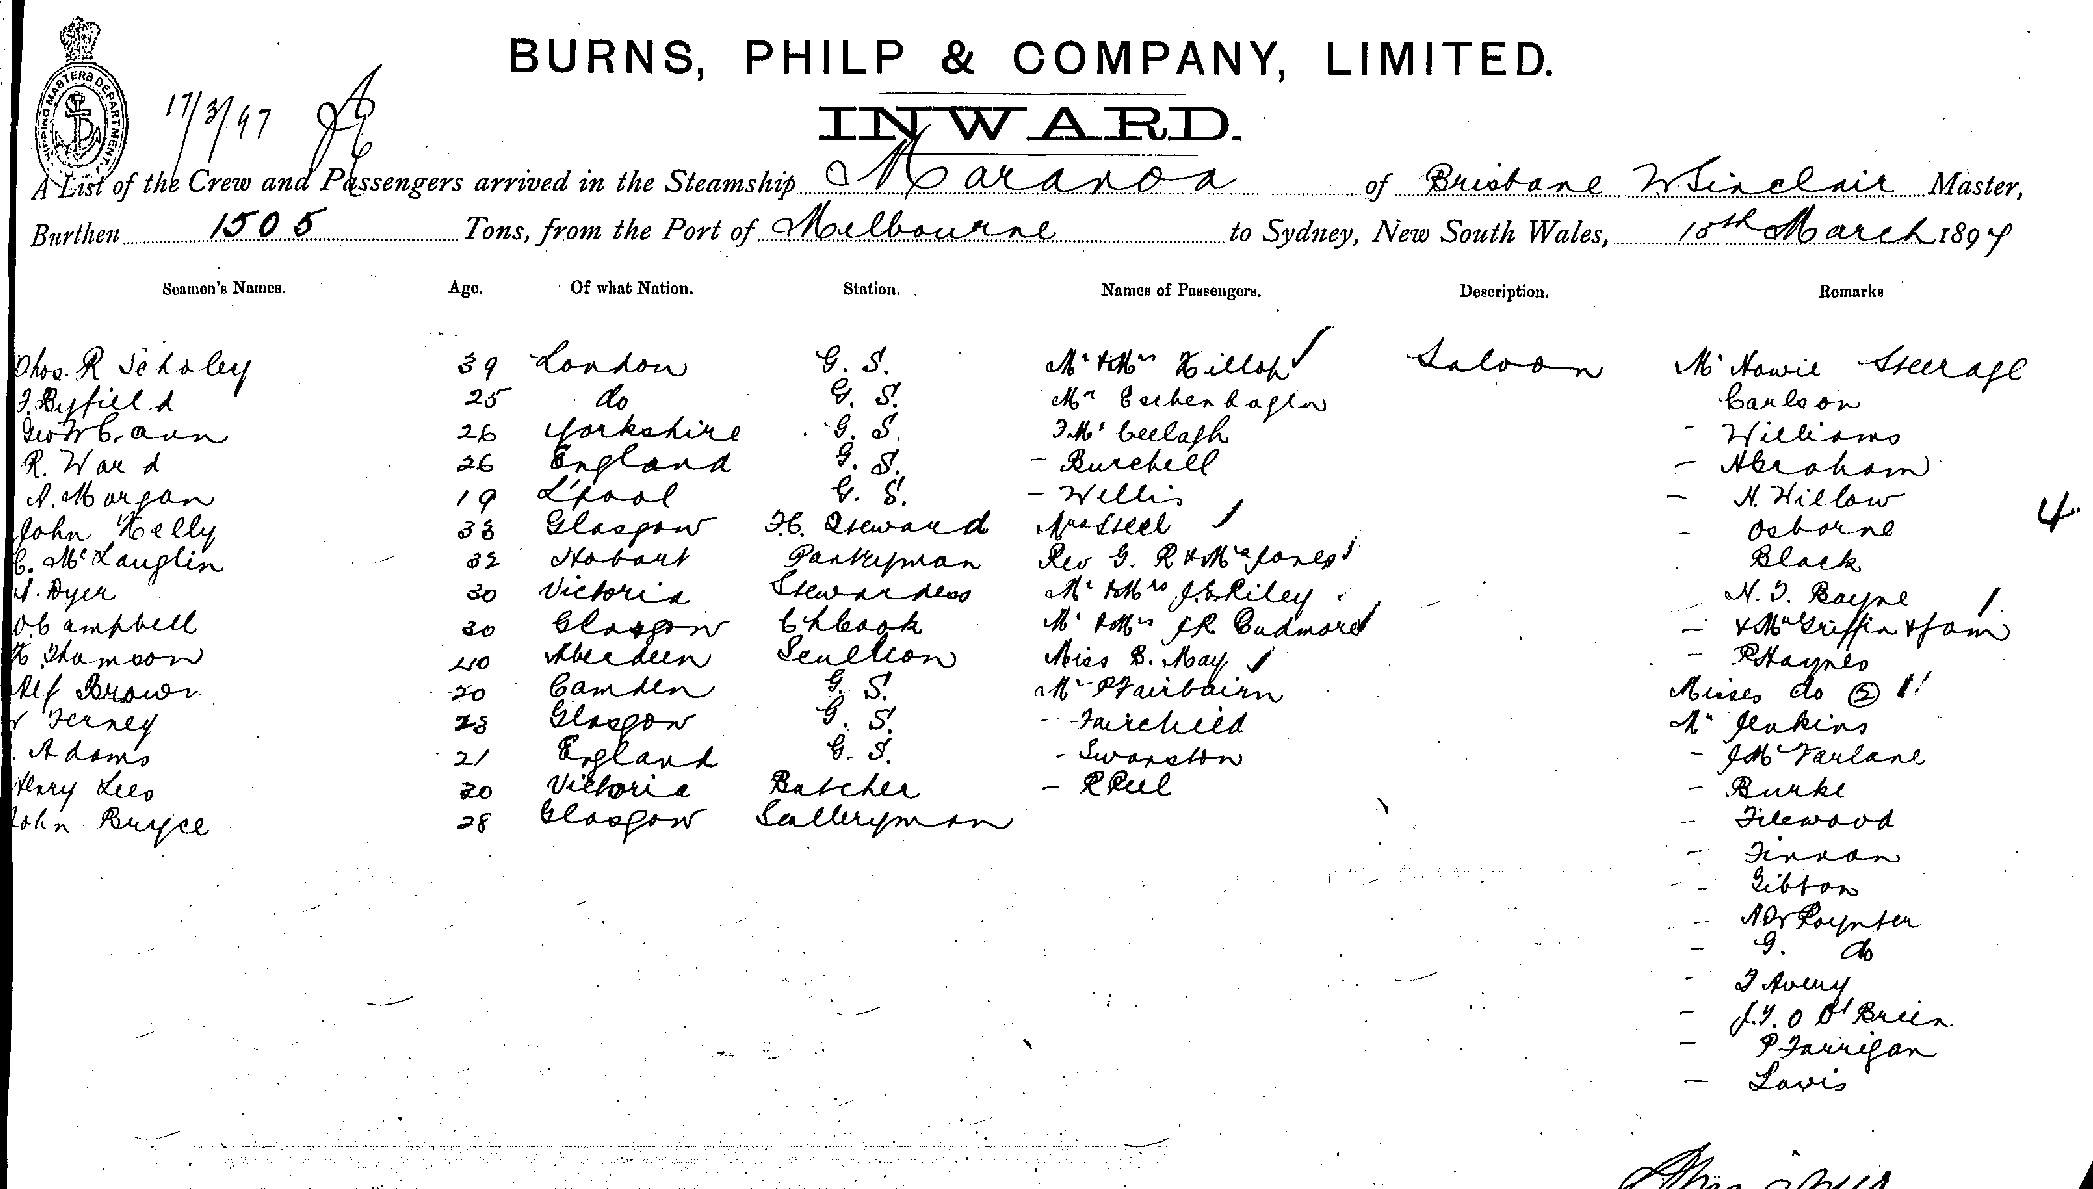 BURNS, PHILP & COMPANY, LIMITED.
INWARD.
SHIPPING MASTERS DEPARTMENT
17/3/97
A List of the Crew and Passengers arrived in the Steamship Maranoa of Brisbane W Sinclair Master,
Burthen 1505 Tons, from the Port of Melbourne to Sydney, New South Wales, 15th March 1897
Seamen's Names. Age. Of what Nation. Station. Names of Passengers. Description. Remarks
R Scholey 39 London G. S. Mr & Mrs Killop Saloon Mr Howie Steerage
Byfield 25 do G. S. Mr Carlson
26 Yorkshire G. S. - Williams
R. Ward 26 England G. S. - Burchell - Abraham
A. Morgan 19 L'pool G. S. - Willis - H. Willow
John Kelly 38 Glasgow F.C. Steward Mrs Steel - Osborne 4
C. McLauglin 32 Hobart Pantryman Rev G. R & Mrs Jones Black
Dyer 30 Victoria Stewardess Mr & Mrs Riley Bayne
Campbell 30 Glasgow Ch Cook Mr & Mrs J R Cudmore - & Mrs Griffin & fam
Thomson 40 Aberdeen Scullion Miss B. May - P Haynes
Alf Brown 20 Camden G. S. Mr P Fairbairn Misses do (2)
Ferney 23 Glasgow G. S. - Fairchild Mr Jenkins
Adams 21 England G. S. - Swanston - J McFarlane
Henry Lees 30 Victoria Butcher - R Peel - Burke
John Bryce 28 Glasgow Sculleryman - Filewood
- Finnan
- Gibton
- Poynter
- G. do
- F Avery
- O'Brien
- P Farrigan
- Lavis